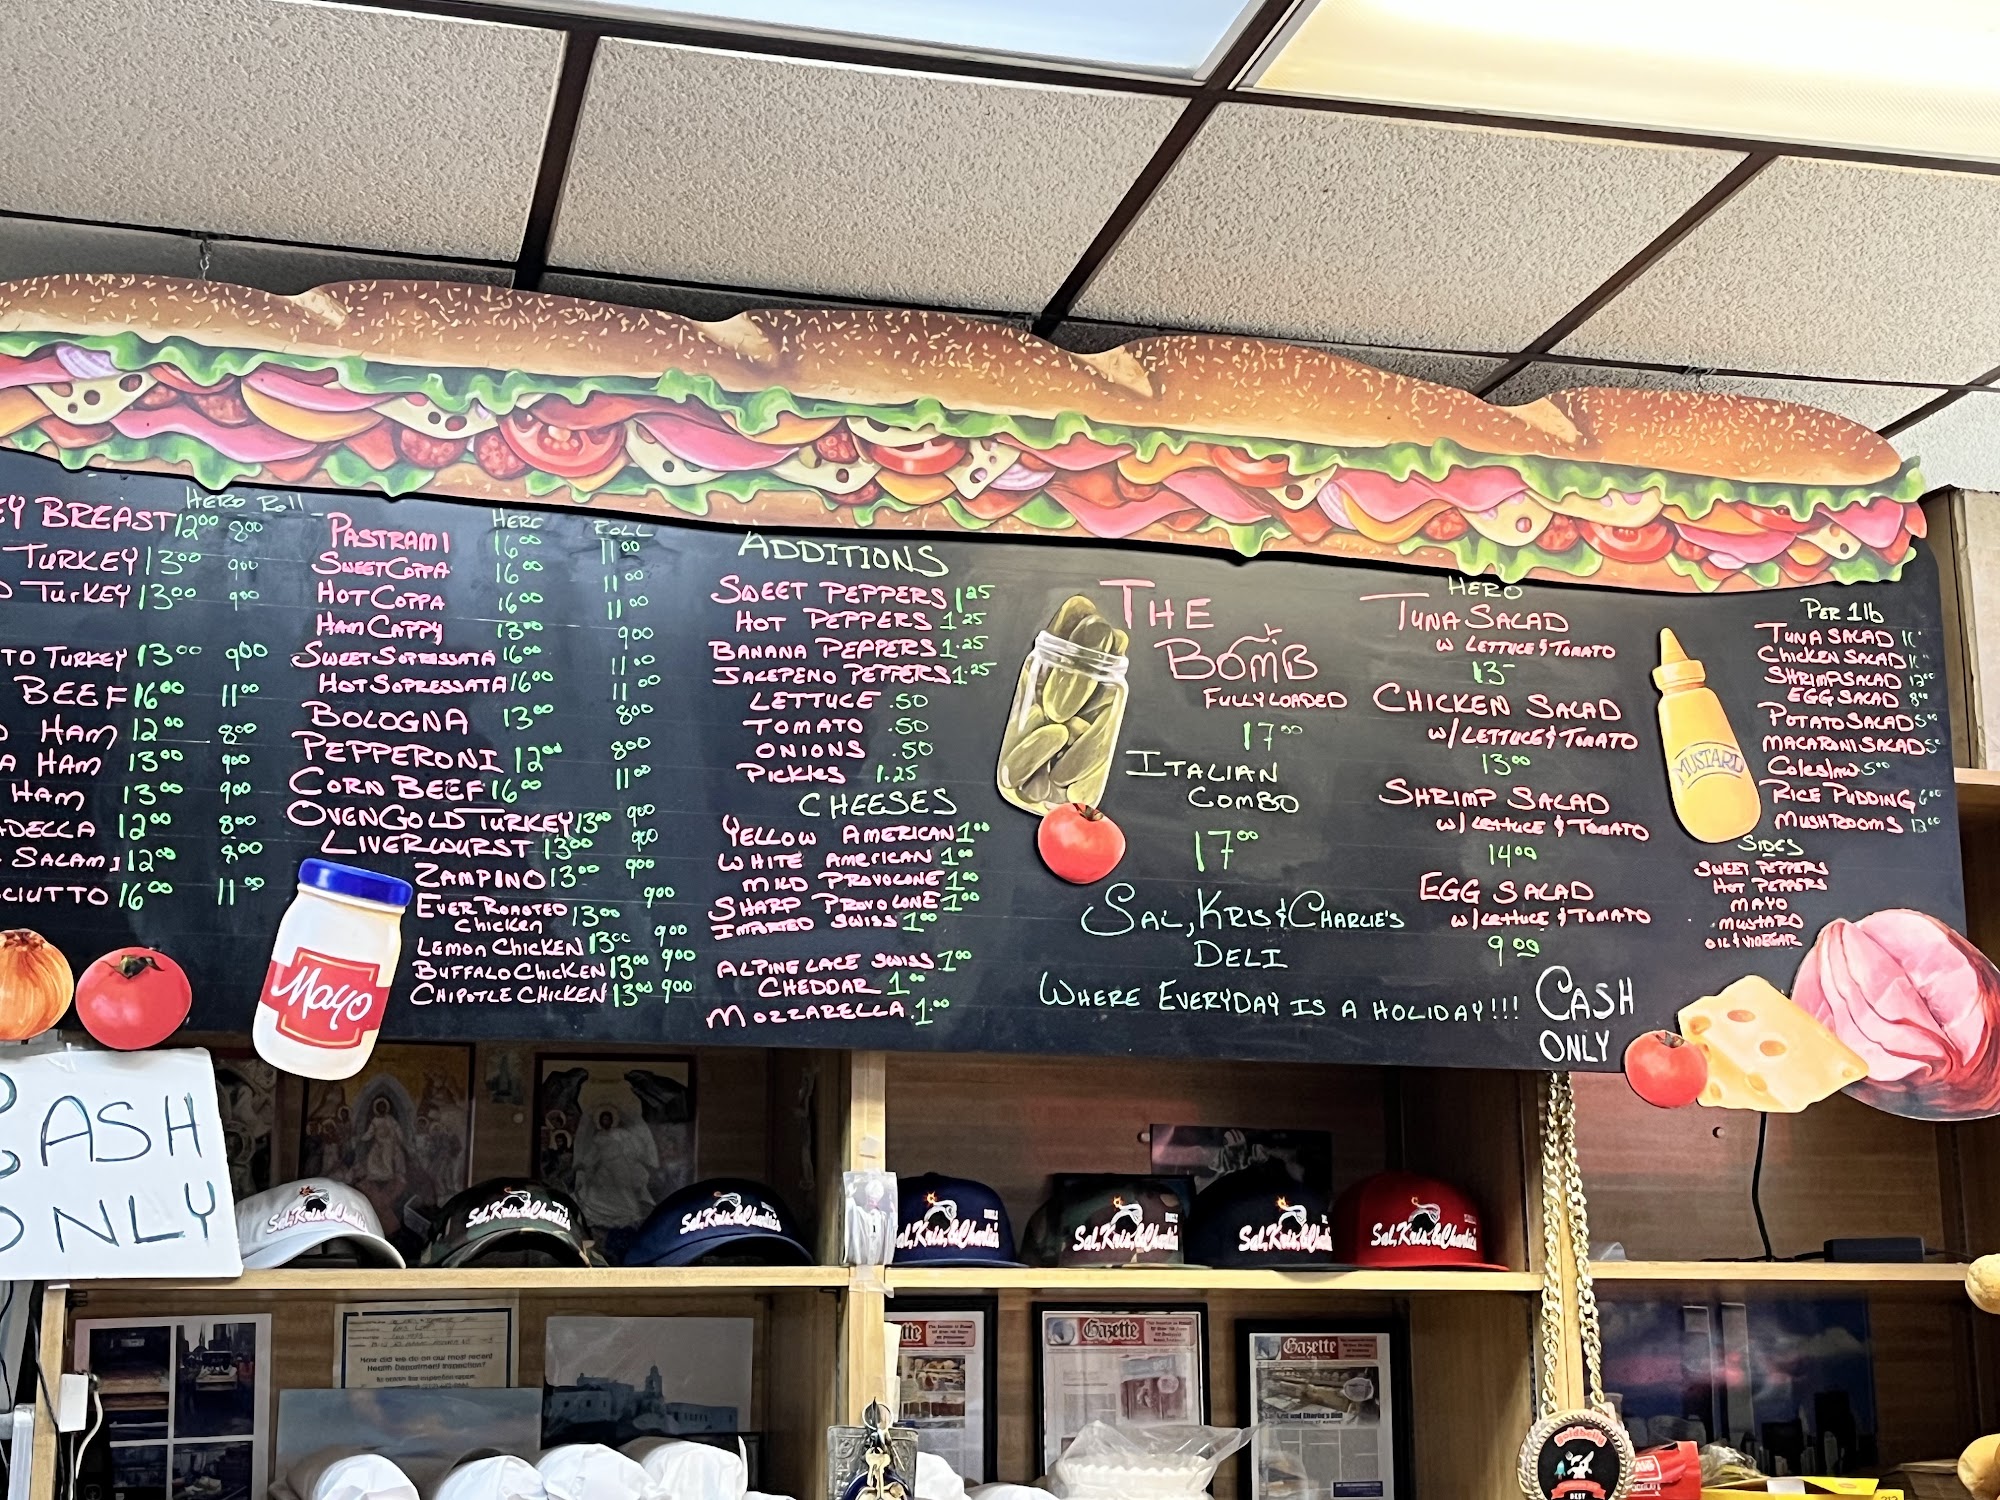 HERO ROLL
BREAST 12⁰⁰ 8⁰⁰
TURKEY 13⁰⁰ 9⁰⁰
TURKEY 13⁰⁰ 9⁰⁰
TO TURKEY 13⁰⁰ 9⁰⁰
BEEF 16⁰⁰ 11⁰⁰
HAM 12⁰⁰ 8⁰⁰
A HAM 13⁰⁰ 9⁰⁰
HAM 13⁰⁰ 9⁰⁰
ADELLA 12⁰⁰ 8⁰⁰
SALAMI 12⁰⁰ 8⁰⁰
CIUTTO 16⁰⁰ 11⁰⁰
HERO ROLL
PASTRAMI 16⁰⁰ 11⁰⁰
SWEET COPPA 16⁰⁰ 11⁰⁰
HOT COPPA 16⁰⁰ 11⁰⁰
HAM CAPPY 13⁰⁰ 9⁰⁰
SWEET SOPRESSATA 16⁰⁰ 11⁰⁰
HOT SOPRESSATA 16⁰⁰ 11⁰⁰
BOLOGNA 13⁰⁰ 8⁰⁰
PEPPERONI 12⁰⁰ 8⁰⁰
CORN BEEF 16⁰⁰ 11⁰⁰
OVENGOLD TURKEY 13⁰⁰ 9⁰⁰
LIVERWURST 13⁰⁰ 9⁰⁰
ZAMPINO 13⁰⁰ 9⁰⁰
EVER ROASTED
CHICKEN 13⁰⁰ 9⁰⁰
LEMON CHICKEN 13⁰⁰ 9⁰⁰
BUFFALO CHICKEN 13⁰⁰ 9⁰⁰
CHIPOTLE CHICKEN 13⁰⁰ 9⁰⁰
Mayo
ADDITIONS
SWEET PEPPERS 1.25
HOT PEPPERS 1.25
BANANA PEPPERS 1.25
JALEPENO PEPPERS 1.25
LETTUCE .50
TOMATO .50
ONIONS .50
PICKLES 1.25
CHEESES
YELLOW AMERICAN 1⁰⁰
WHITE AMERICAN 1⁰⁰
MILD PROVOLONE 1⁰⁰
SHARP PROVOLONE 1⁰⁰
IMPORTED SWISS 1⁰⁰
ALPINE LACE SWISS 1⁰⁰
CHEDDAR 1⁰⁰
MOZZARELLA 1⁰⁰
THE
BOMB
FULLY LOADED
17⁰⁰
ITALIAN
COMBO
17⁰⁰
SAL, KRIS & CHARLIE'S
DELI
WHERE EVERYDAY IS A HOLIDAY!!!
HERO
TUNA SALAD
W LETTUCE & TOMATO
13-
CHICKEN SALAD
W/ LETTUCE & TOMATO
13⁰⁰
SHRIMP SALAD
W/ LETTUCE & TOMATO
14⁰⁰
EGG SALAD
W/ LETTUCE & TOMATO
9⁰⁰
CASH
ONLY
MUSTARD
PER 1lb
TUNA SALAD
CHICKEN SALAD
SHRIMP SALAD 13⁰⁰
EGG SALAD 8⁰⁰
POTATO SALAD 5⁰⁰
MACARONI SALAD 5
COLESLAW 5⁰⁰
RICE PUDDING 6⁰⁰
MUSHROOMS 12⁰⁰
SIDES
SWEET PEPPERS
HOT PEPPERS
MAYO
MUSTARD
OIL & VINEGAR
CASH
ONLY
Sal, Kris, & Charlie's
Sal, Kris, & Charlie's
Sal, Kris, & Charlie's
Sal, Kris, & Charlie's
Sal, Kris, & Charlie's
Sal, Kris, & Charlie's
Sal, Kris, & Charlie's
How did we do on our most recent
Health Department inspection?
Gazette
Gazette
goldbelly
BEST